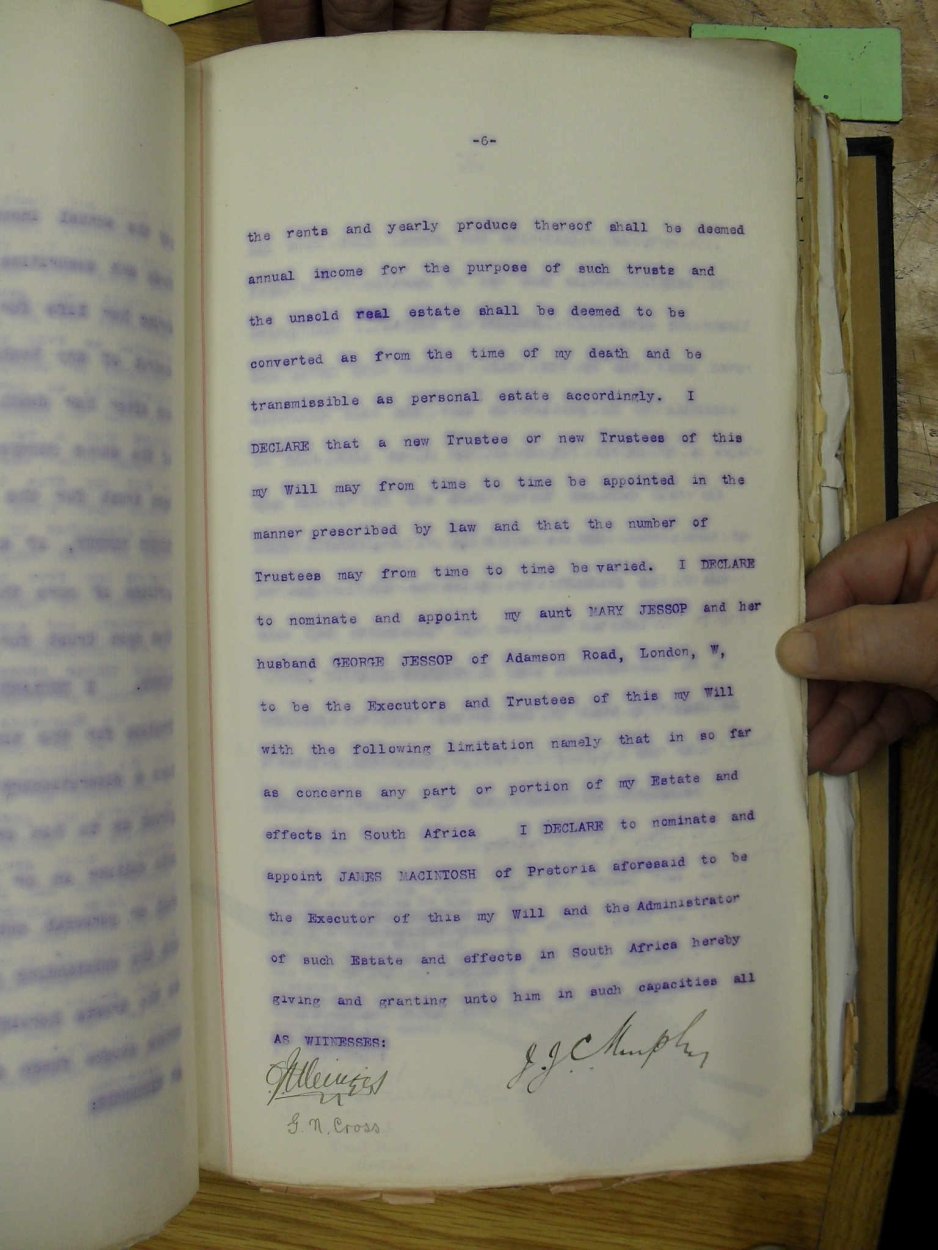 -6-
the rents and yearly produce thereof shall be deemed
annual income for the purpose of such trusts and
the unsold real estate shall be deemed to be
converted as from the time of my death and be
transmissible as personal estate accordingly. I
DECLARE that a new Trustee or new Trustees of this
my Will may from time to time be appointed in the
manner prescribed by law and that the number of
Trustees may from time to time be varied. I DECLARE
to nominate and appoint my aunt MARY JESSOP and her
husband GEORGE JESSOP of Adamson Road, London, W,
to be the Executors and Trustees of this my Will
with the following limitation namely that in so far
as concerns any part or portion of my Estate and
effects in South Africa I DECLARE to nominate and
appoint JAMES MACINTOSH of Pretoria aforesaid to be
the Executor of this my Will and the Administrator
of such Estate and effects in South Africa hereby
giving and granting unto him in such capacities all
AS WITNESSES:
J.J.C. Murphy
G. N. Cross